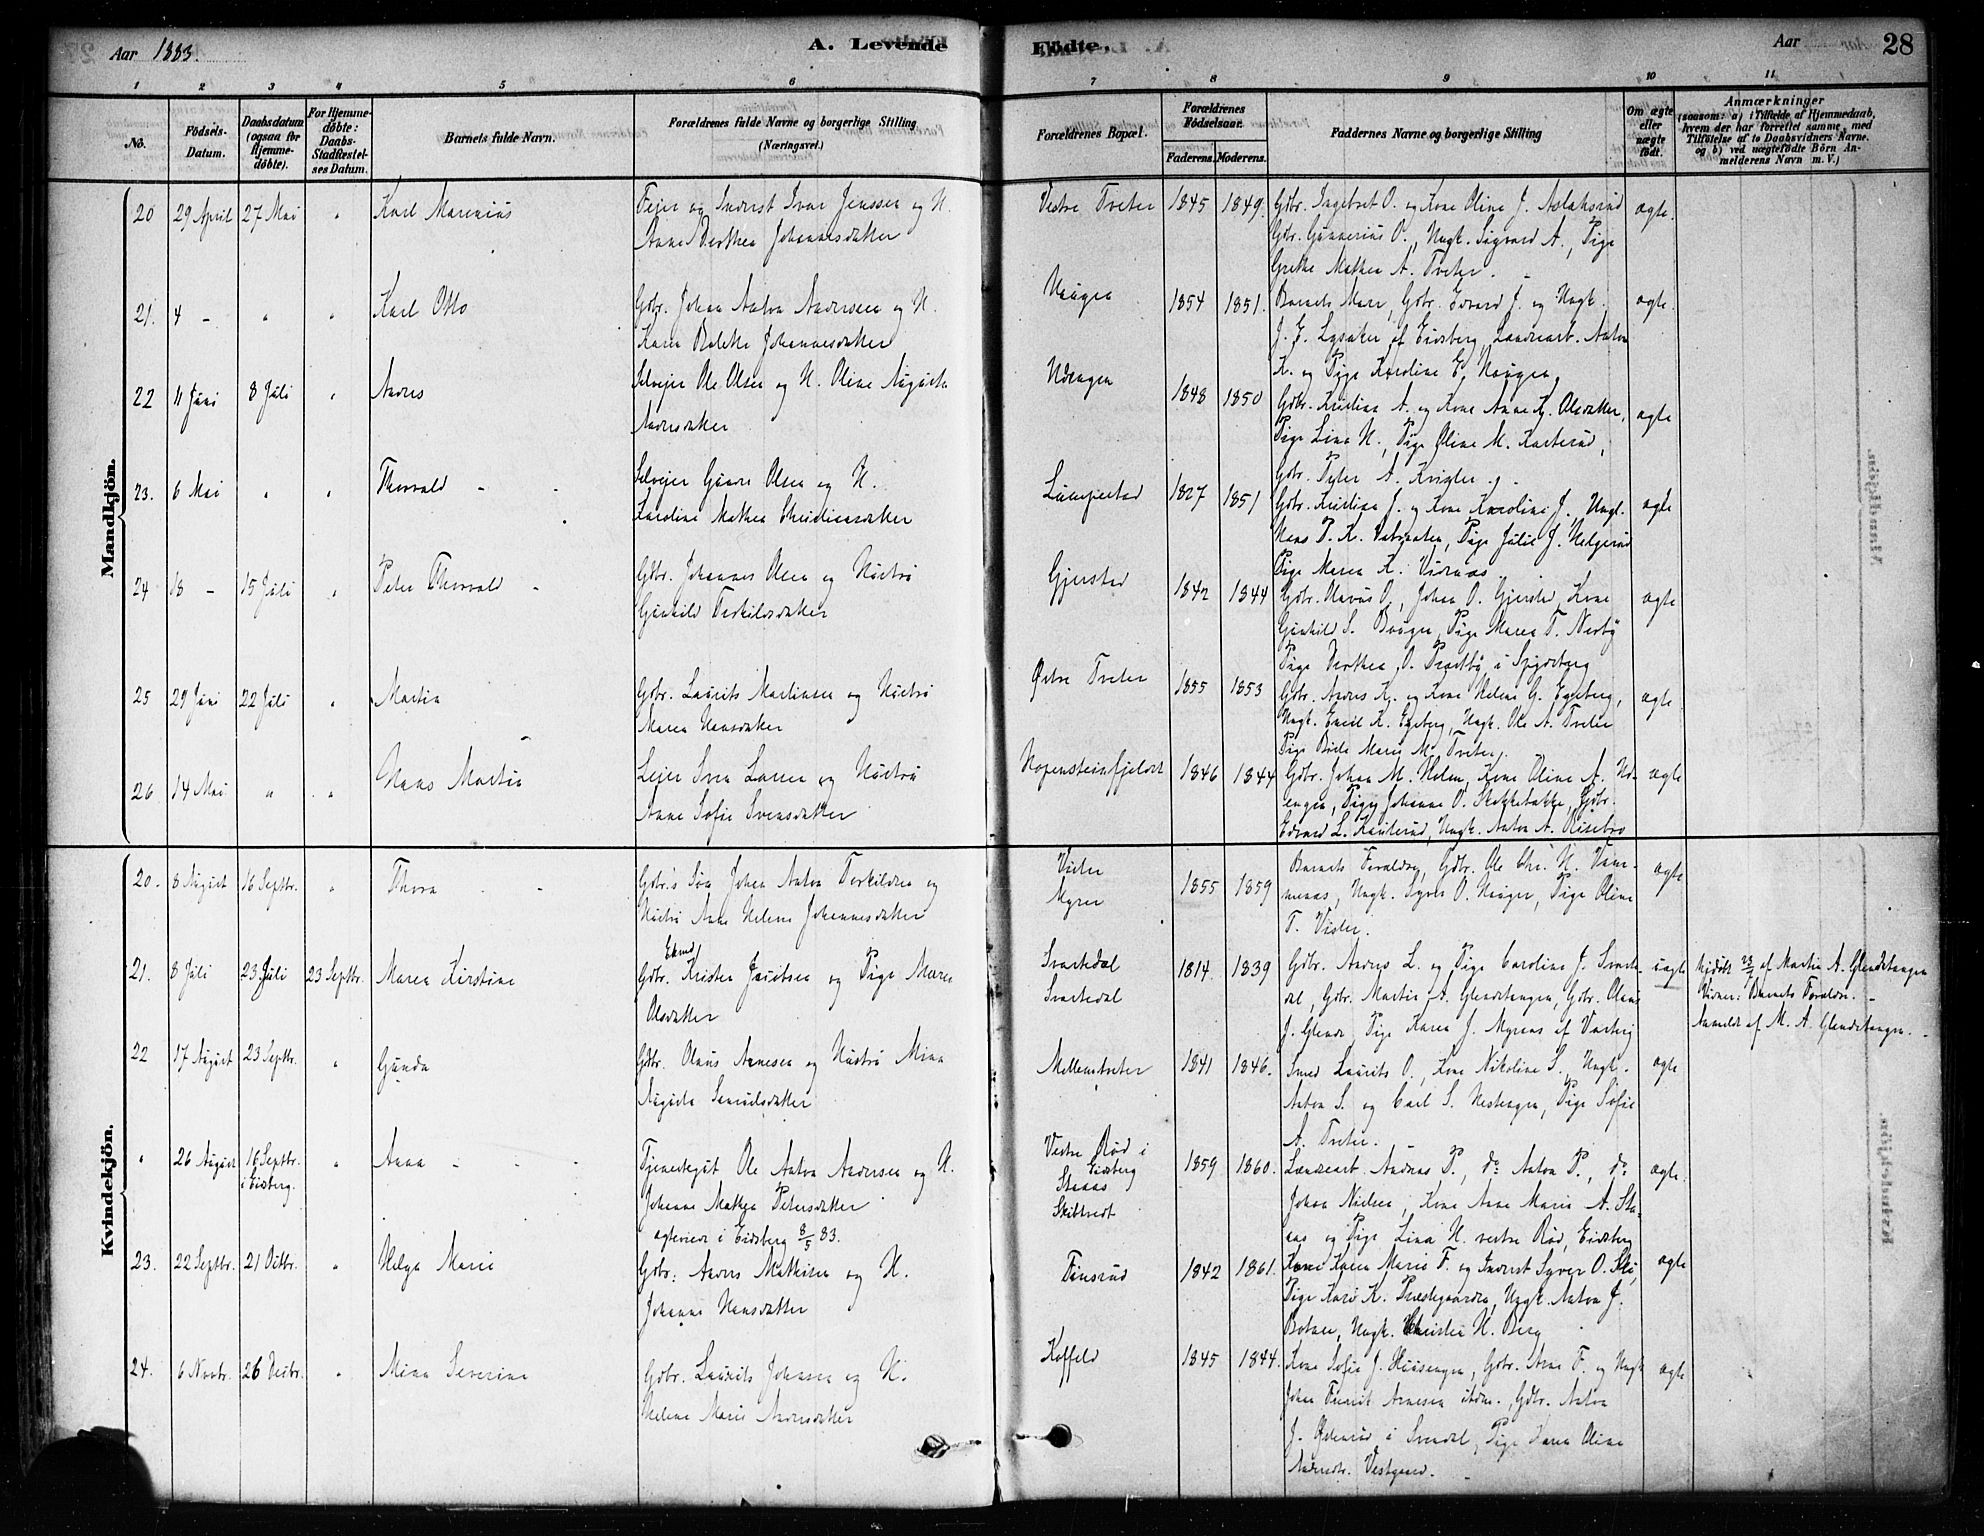 Aar 1883.
A. Levende
Födte.
Aar
28
1 2 3 4 5 6 7 8 9 10 11
No.
Födsels-Datum.
Daabsdatum (ogsaa for Hjemme-döbte).
For Hjemme-döbte: Daabs-Stadfæstel-ses Datum.
Barnets fulde Navn.
Forældrenes fulde Navne og borgerlige Stilling (Næringsvei.)
Forældrenes Bopæl.
Forældrenes Födselsaar.
Faderens. Moderens.
Faddernes Navne og borgerlige Stilling
Om ægte eller uægte födt.
Anmærkninger
(saasom: a) i Tilfælde af Hjemmedaab, hvem der har forrettet samme, med Tilföielse af to Daabsvidners Navne. og b) ved uægtefödte Börn An-melderens Navn m.V.)
Mandkjön.
20 29 April 27 Mai " Karl Marenius
Feier og Inderst Ivar Jenssen og H.
Anne Dorthea Johannesdatter
Vestre Tveter 1845 1849.
Gdbr. Ingebret O. og Kone Oline J. Aslaksrud
Gdbr. Gunnerius O., Ungk. Sigvard A., Pige
Grethe Mathea A. Tveter.
ægte.
21. 4 - " " Karl Otto
Gdbr. Johan Anton Andersen og H.
Karen Bolette Johannesdatter
Haugen 1854 1851.
Barnets Moer, Gdbr. Edvard J. og Ungk.
J. E. Lysaker af Eidsberg, Landarb. Anton
K. og Pige Karoline E. Haugen.
ægte.
22 11 Juni 8 Juli " Andres
Selveier Ole Olsen og H. Oline Auguste
Andersdatter
Udengen 1848 1850
Gdbr. Kristian A. og Kone Anne K. Olsdatter,
Pige Lina H., Pige Oline M. Karterud,
Gdbr. Peter A. Krigler.
ægte
23. 6 Mai " " Thorvald
Selveier Gunder Olsen og H.
Karoline Mathea Christiansdatter
Lumpestad 1827 1851
Gdbr. Kristian J. og Kone Karoline J., Ungk.
Hans P. K. Vatvaten, Pige Julie J. Helgerud
Pige Maren K. Vidnæs
ægte
24 18 - 15 Juli " Peter Thorvald
Gdbr. Johannes Olsen og Hustru
Gunhild Terkilsdatter
Gjerstad 1842 1844
Gdbr. Olavus O., Johan O. Gjerstad, Kone
Gunhild S. Bougen, Pige Maren T. Nerby
Pige Dorthea O. Prestby i Spydeberg
ægte
25 29 Juni 22 Juli " Martin
Gdbr. Laurits Martinsen og Hustru
Maren Hansdatter
Østre Tveter 1855 1853
Gdbr. Andres K. og Kone Helene G. Egeberg,
Ungk. Emil K. Egeberg, Ungk. Ole A. Tveter
Pige Berte Marie M. Tveter.
ægte
26 14 Mai " " Hans Martin
Leier Sven Larsen og Hustru
Anne Sofie Svensdatter
Hopensteinfjeldet 1846 1844
Gdbr. Johan M. Holen, Kone Oline A. Ud-
engen, Pige Johanne O. Stikkebakke, Gdbr.
Edvard L. Karterud, Ungk. Anton A. Risebro
ægte
Kvindekjön.
20. 8 August 16 Septbr. " Thora
Gdbr.'s Søn Johan Anton Terkildsen og
Hustru Anne Helene Johannesdatter
Vister
Myrer
1855 1859
Barnets Forældre, Gdbr. Ole Chr. H. Vam-
menæs, Ungk. Syver O. Haugen, Pige Oline
T. Vister.
ægte
21. 8 Juli 23 Juli 23 Septbr. Maren Kirstine
Gdbr. Enkmd Krister Jacobsen og Pige Maren
Olsdatter
Svartedal
Svartedal
1814. 1839
Gdbr. Andres L. og Pige Caroline J. Svarte-
dal, Gdbr. Martin A. Glendetangen, Gdbr. Olaus
J. Glende, Pige Karen J. Myrens af Varteig
uægte
Hjdöbt 23/7 af Martin A. Glendetangen
Vidner: Barnets Forældre.
Anmeldt af M. A. Glendetangen.
22 17 August 23 Septbr. " Gunda
Gdbr. Olaus Arnesen og Hustru Mina
Augusta Samuelsdatter
Mellemtveter 1841 1846.
Smed Laurits O., Kone Nikoline S., Ungk.
Anton S. og Carl S. Nestengen, Pige Sofie
A. Tveter.
ægte
" 26 August 16 Septbr. i Eidsberg. " Anna
Tjenestegut Ole Anton Andersen og H.
Johanne Mathea Petersdatter
ægteviede i Eidsberg 8/5 83.
Vestre Rød i
Eidsberg
Staaas
Skibtvedt
1859 1860.
Landarb. Andreas P., do Anton P., do
Johan Nielsen, Kone Anne Marie A. Sta-
aas og Pige Lina H. vestre Rød, Eidsberg
ægte.
23. 22 Septbr. 21 Octbr. " Helga Marie
Gdbr. Andres Mathisen og H.
Johanne Hansdatter
Finsrud 1842 1861.
Kone Karen Marie F. og Inderst Syver O. Ski,
Pige Karo K. Præstegaarden, Ungk. Anton J.
Botner, Ungk. Christen H. Berg
ægte
24. 6 Novbr. 26 Decbr. " Mina Severine
Gdbr. Laurits Johansen og H.
Helene Marie Andersdatter
Kolfeld 1845 1844.
Kone Sofie J. Huusengen, Gdbr. Arne F. og Ungk
Johan Arnesen, Gdbr. Anton
J. Østerud i Svendal, Pige Karen Oline
Andersdtr. Vestgaard.
ægte